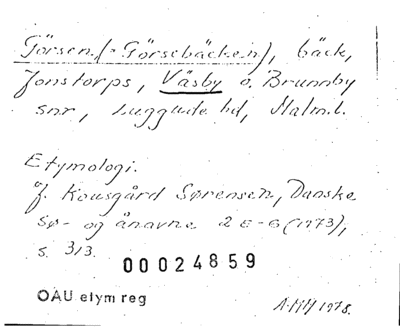 Görsen (=Görsebäcken), bäck,
Jonstorps, Väsby o. Brunnby
snr, Luggude hd, Malm.l.
Etymologi.
Jf. Kousgård Sørensen, Danske
sø- og ånavne 2 E-G (1973),
s. 313.
00024859
OAU etym reg
1978.